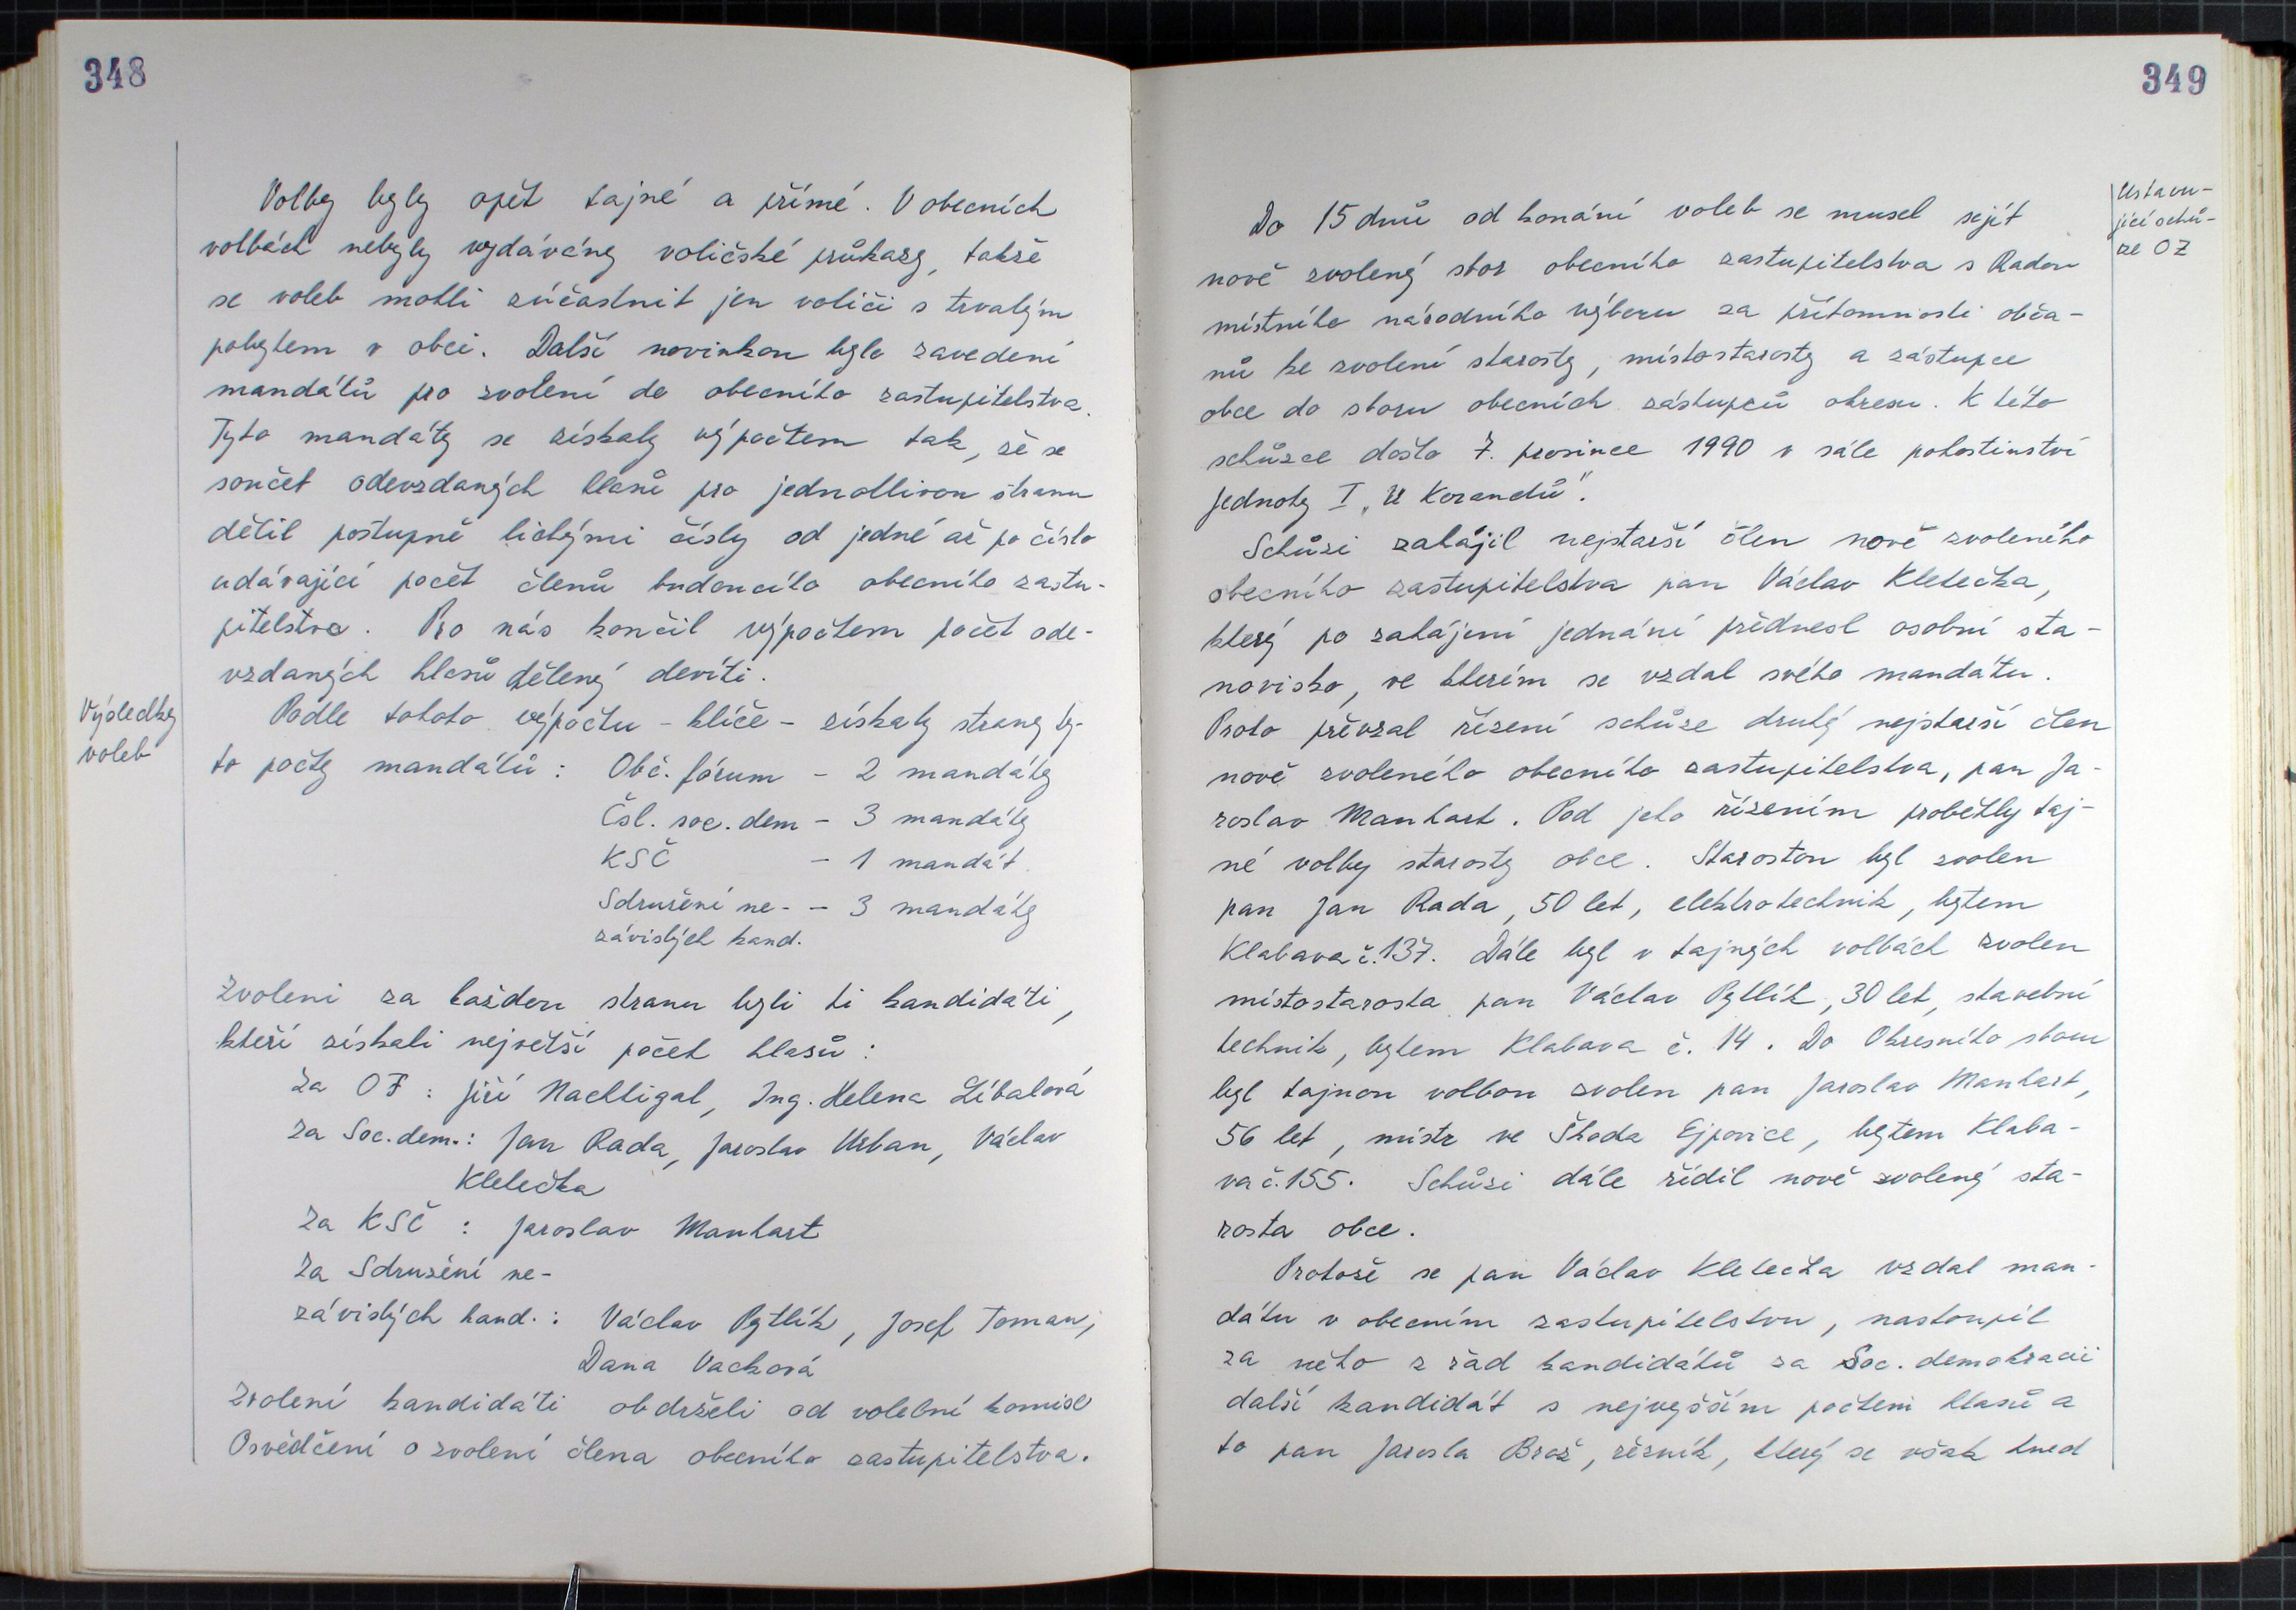 348
Volby byly opět tajné a přímé. V obecních
volbách nebyly vydávány voličské průkazy, takže
se voleb mohli zúčastnit jen voliči s trvalým
pobytem v obci. Další novinkou bylo zavedení
mandátů pro zvolení do obecního zastupitelstva.
Tyto mandáty se získaly výpočtem tak, že se
součet odevzdaných hlasů pro jednotlivou stranu
dělil postupně lichými čísly od jedné až po číslo
udávající počet členů budoucího obecního zastu-
pitelstva. Pro nás končil výpočtem počet ode-
vzdaných hlasů dělený devíti.
Výsledky
voleb
Podle tohoto výpočtu - klíče - získaly strany ty-
to počty mandátů: Obč. fórum - 2 mandáty
Čsl. soc. dem - 3 mandáty
KSČ - 1 mandát.
Sdružení ne- - 3 mandáty
závislých kand.
Zvoleni za každou stranu byli ti kandidáti,
kteří získali největší počet hlasů:
Za OF: Jiří Nachtigal, Ing. Helena Líbalová
Za Soc. dem.: Jan Rada, Jaroslav Urban, Václav
Kletečka
Za KSČ: Jaroslav Manhart
Za Sdružení ne-
závislých kand.: Václav Pytlík, Josef Toman,
Dana Vacková
Zvolení kandidáti obdrželi od volební komise
Osvědčení o zvolení člena obecního zastupitelstva.
349
Ustavu-
jící schů-
ze OZ
Do 15 dnů od konání voleb se musel sejít
nově zvolený sbor obecního zastupitelstva s Radou
místního národního výboru za přítomnosti obča-
nů ke zvolení starosty, místostarosty a zástupce
obce do sboru obecních zástupců okresu. K této
schůzce došlo 7. prosince 1990 v sále pohostinství
Jednoty I „U Korandů".
Schůzi zahájil nejstarší člen nově zvoleného
obecního zastupitelstva pan Václav Kletečka,
který po zahájení jednání přednesl osobní sta-
novisko, ve kterém se vzdal svého mandátu.
Proto převzal řízení schůze druhý nejstarší člen
nově zvoleného obecního zastupitelstva, pan Ja-
roslav Manhart. Pod jeho řízením proběhly taj-
né volby starosty obce. Starostou byl zvolen
pan Jan Rada, 50 let, elektrotechnik, bytem
Klabava č. 137. Dále byl v tajných volbách zvolen
místostarosta pan Václav Pytlík, 30 let, stavební
technik, bytem Klabava č. 14. Do Okresního sboru
byl tajnou volbou zvolen pan Jaroslav Manhart,
56 let, mistr ve Škoda Ejpovice, bytem Klaba-
va č. 155. Schůzi dále řídil nově zvolený sta-
rosta obce.
Protože se pan Václav Kletečka vzdal man-
dátu v obecním zastupitelstvu, nastoupil
za něho z řad kandidátů za Soc. demokracii
další kandidát s nejvyšším počtem hlasů a
to pan Jarosla Brož, řezník, který se však hned